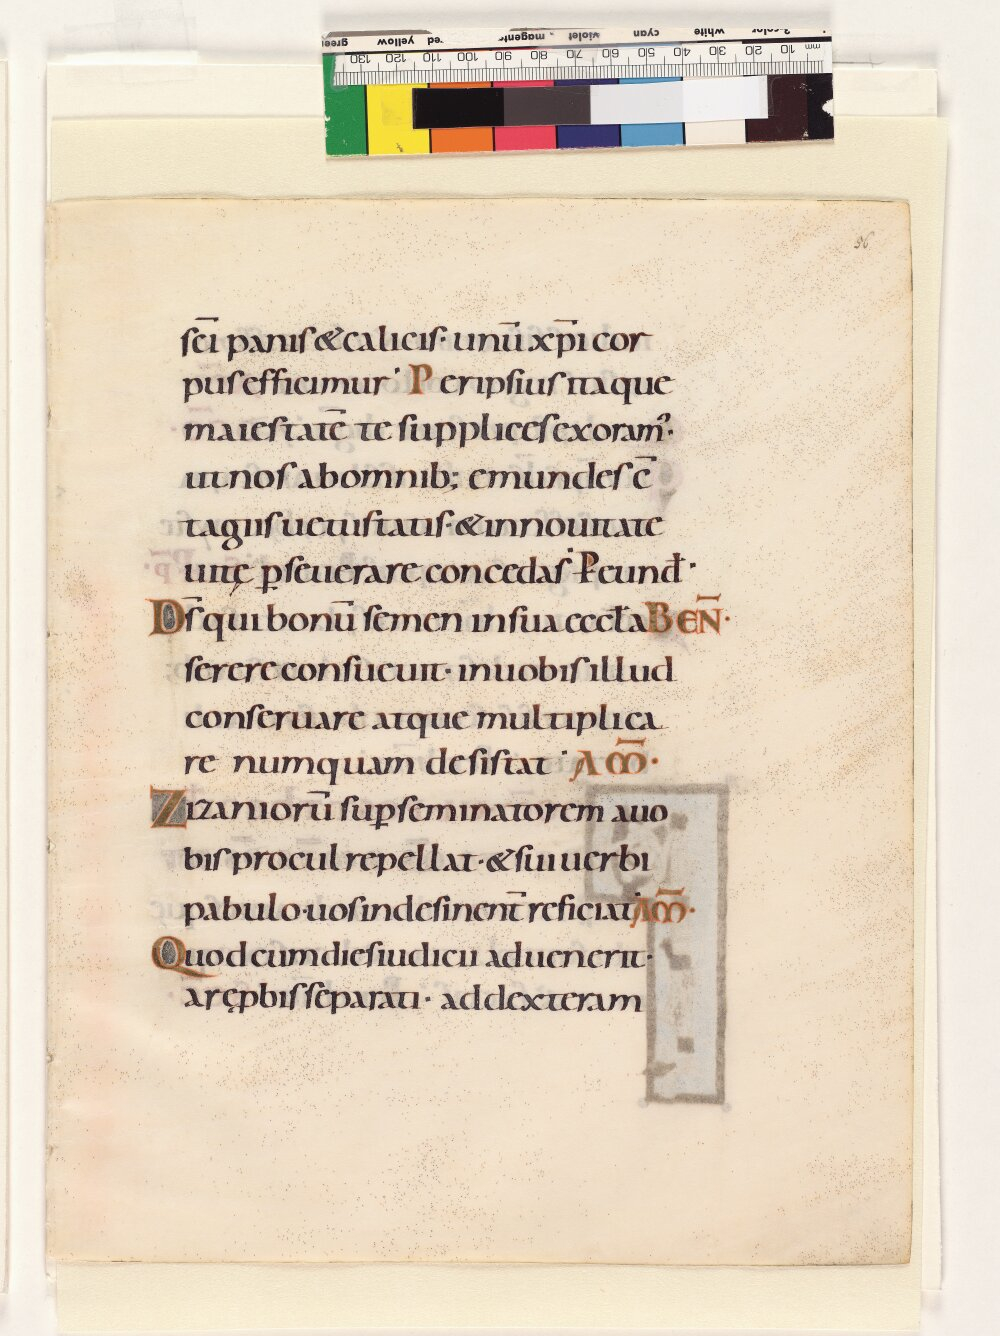 green yellow red magenta violet cyan white 3-color
130 120 110 100 90 80 70 60 50 40 30 20 10 mm
96
sc̄i panis & calicis· unū xp̄i cor
pus efficimur· Per ipsius itaque
maiestatē te supplices exoram᾿·
ut nos ab omnib; emundes c̄
tagiis uetustatis· & in nouitate
uitę p̱seuerare concedas· P̵ eund̄·
D̄s qui bonū semen in sua eccl̄a BEN̄·
serere consueuit· in uobis illud
conseruare atque multiplica
re numquam desistat· AM̄·
Zizaniorū sup̱seminatorem a uo
bis procul repellat· & sui uerbi
pabulo· uos indesinent̄ reficiat AM̄·
Quod cum dies iudicii aduenerit·
a rep̱bis separati· ad dexteram